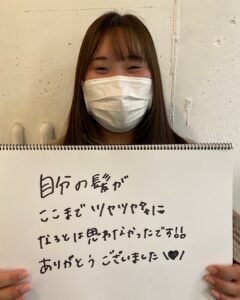 自分の髪が
ここまでツヤツヤに
なるとは思わなかったです!!
ありがとうございました♥